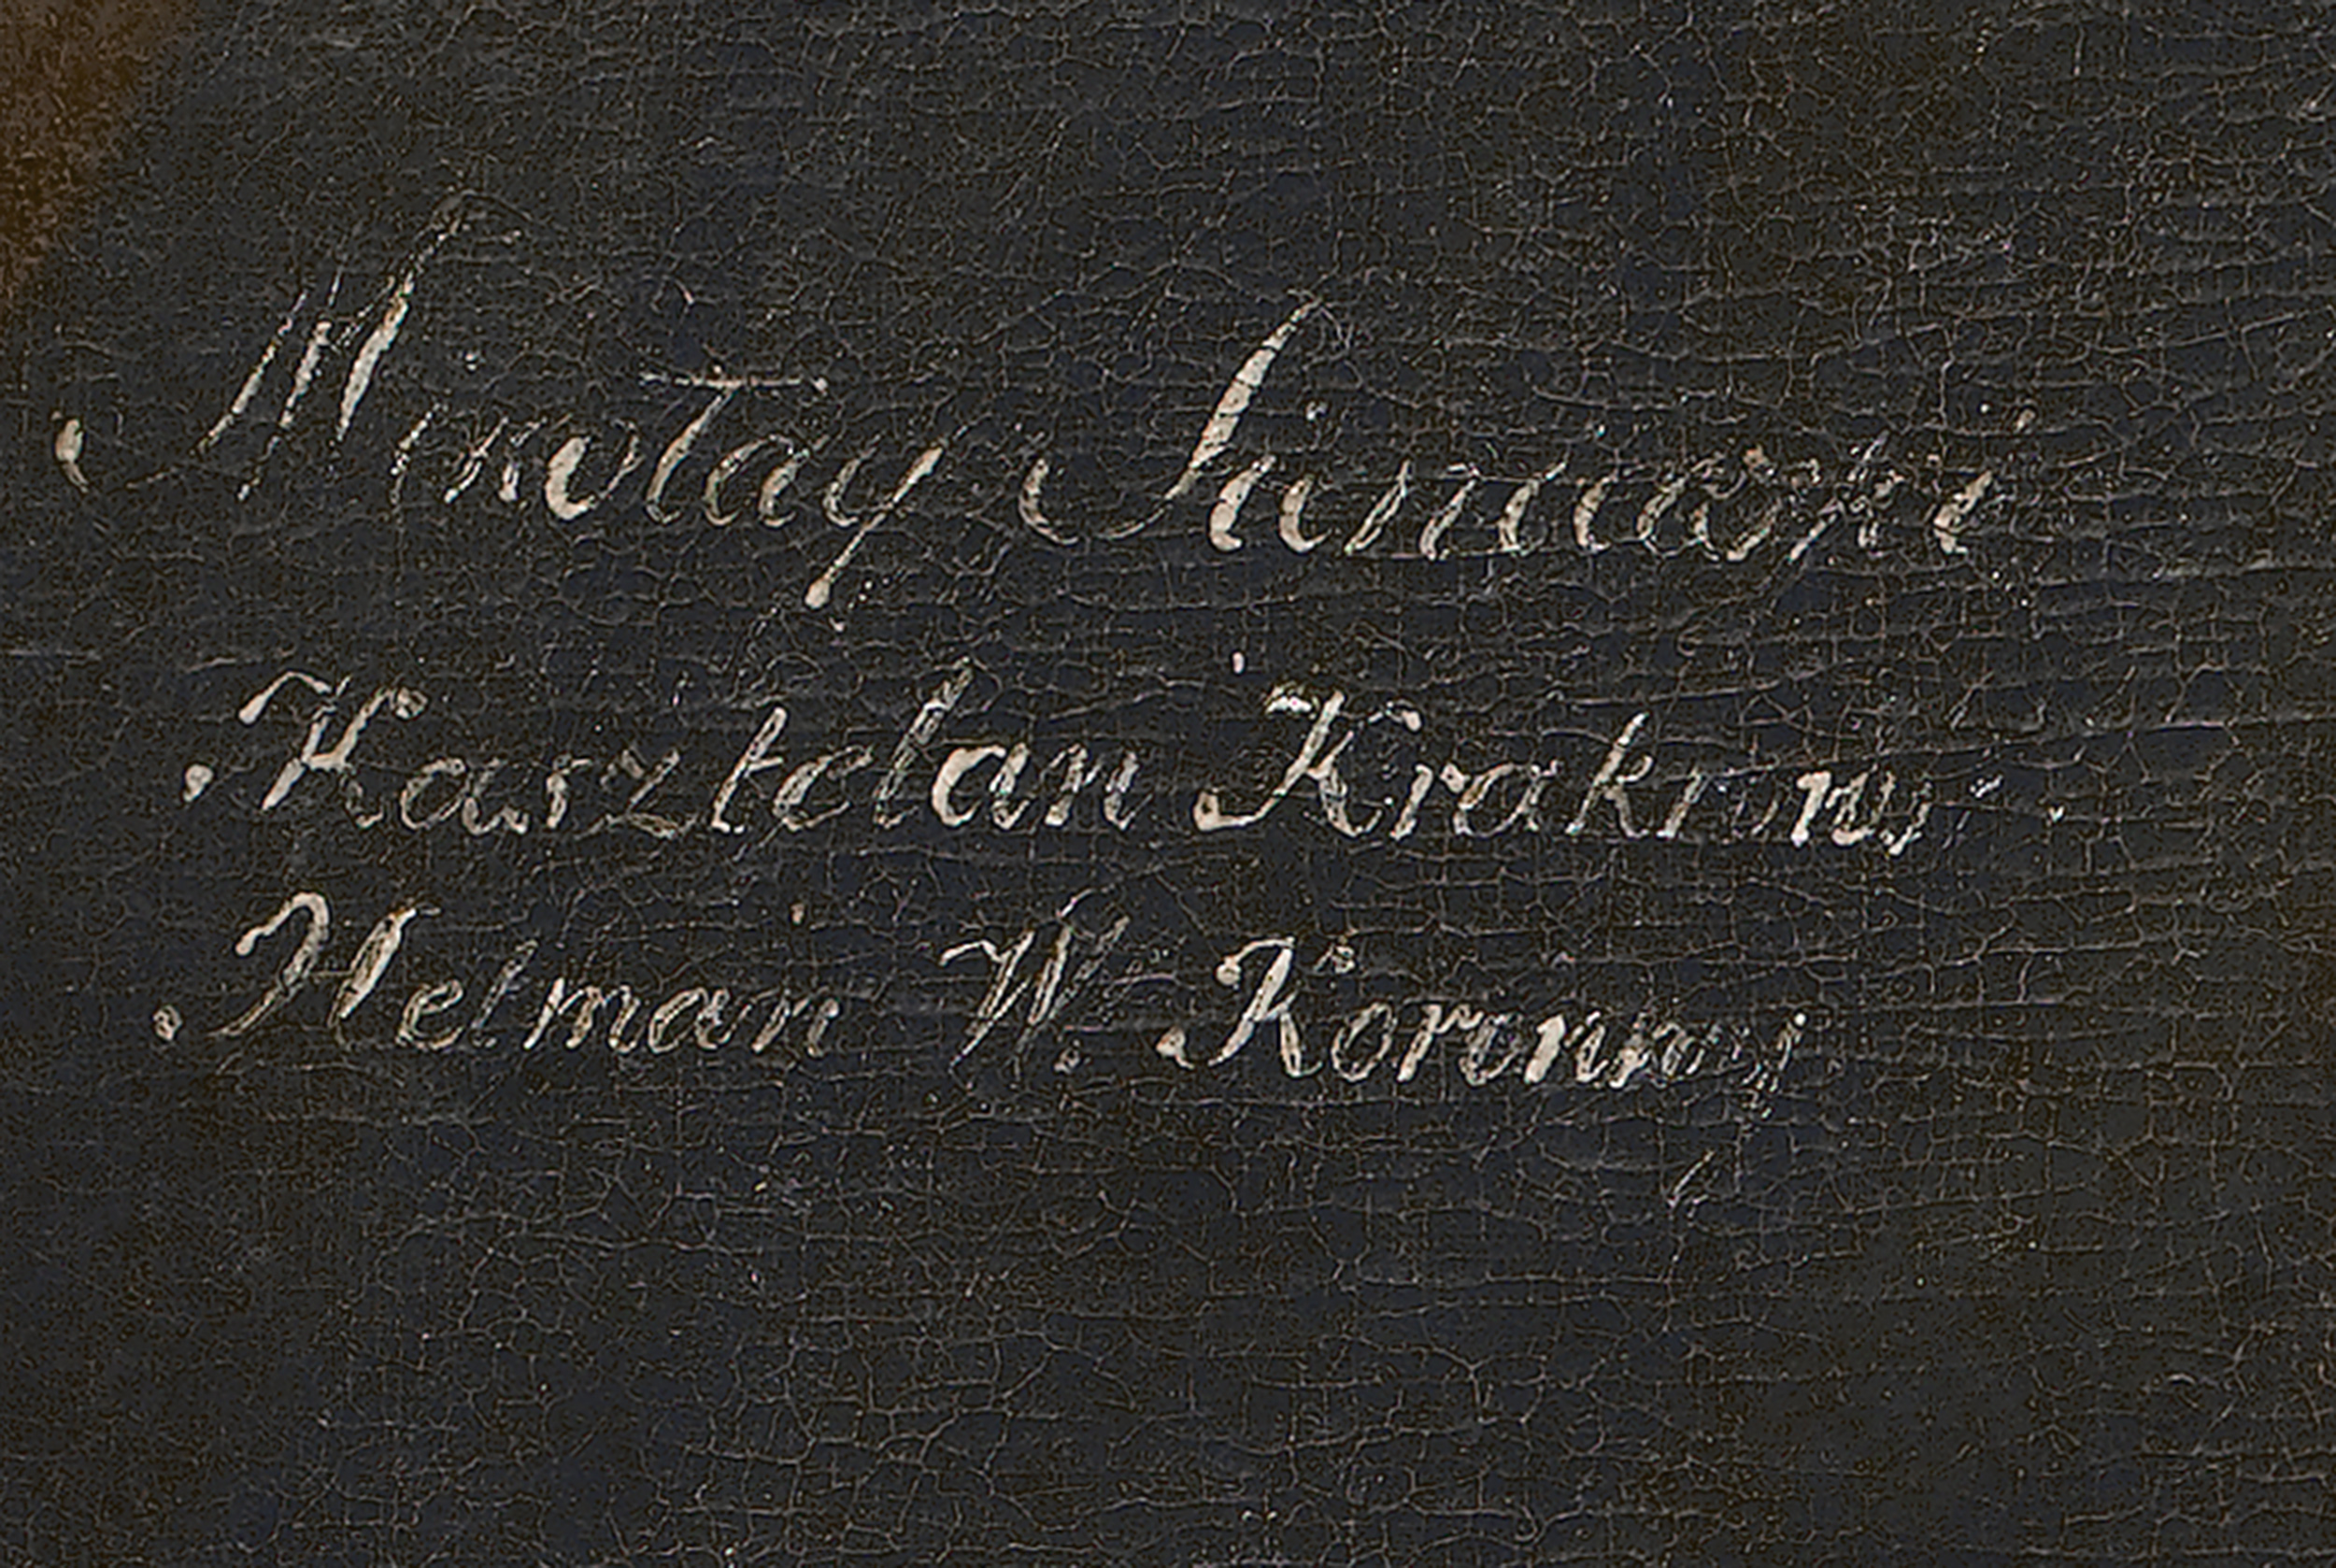 Mikołay Sieniawski
Kasztelan Krakows
Hetman W. Koronny